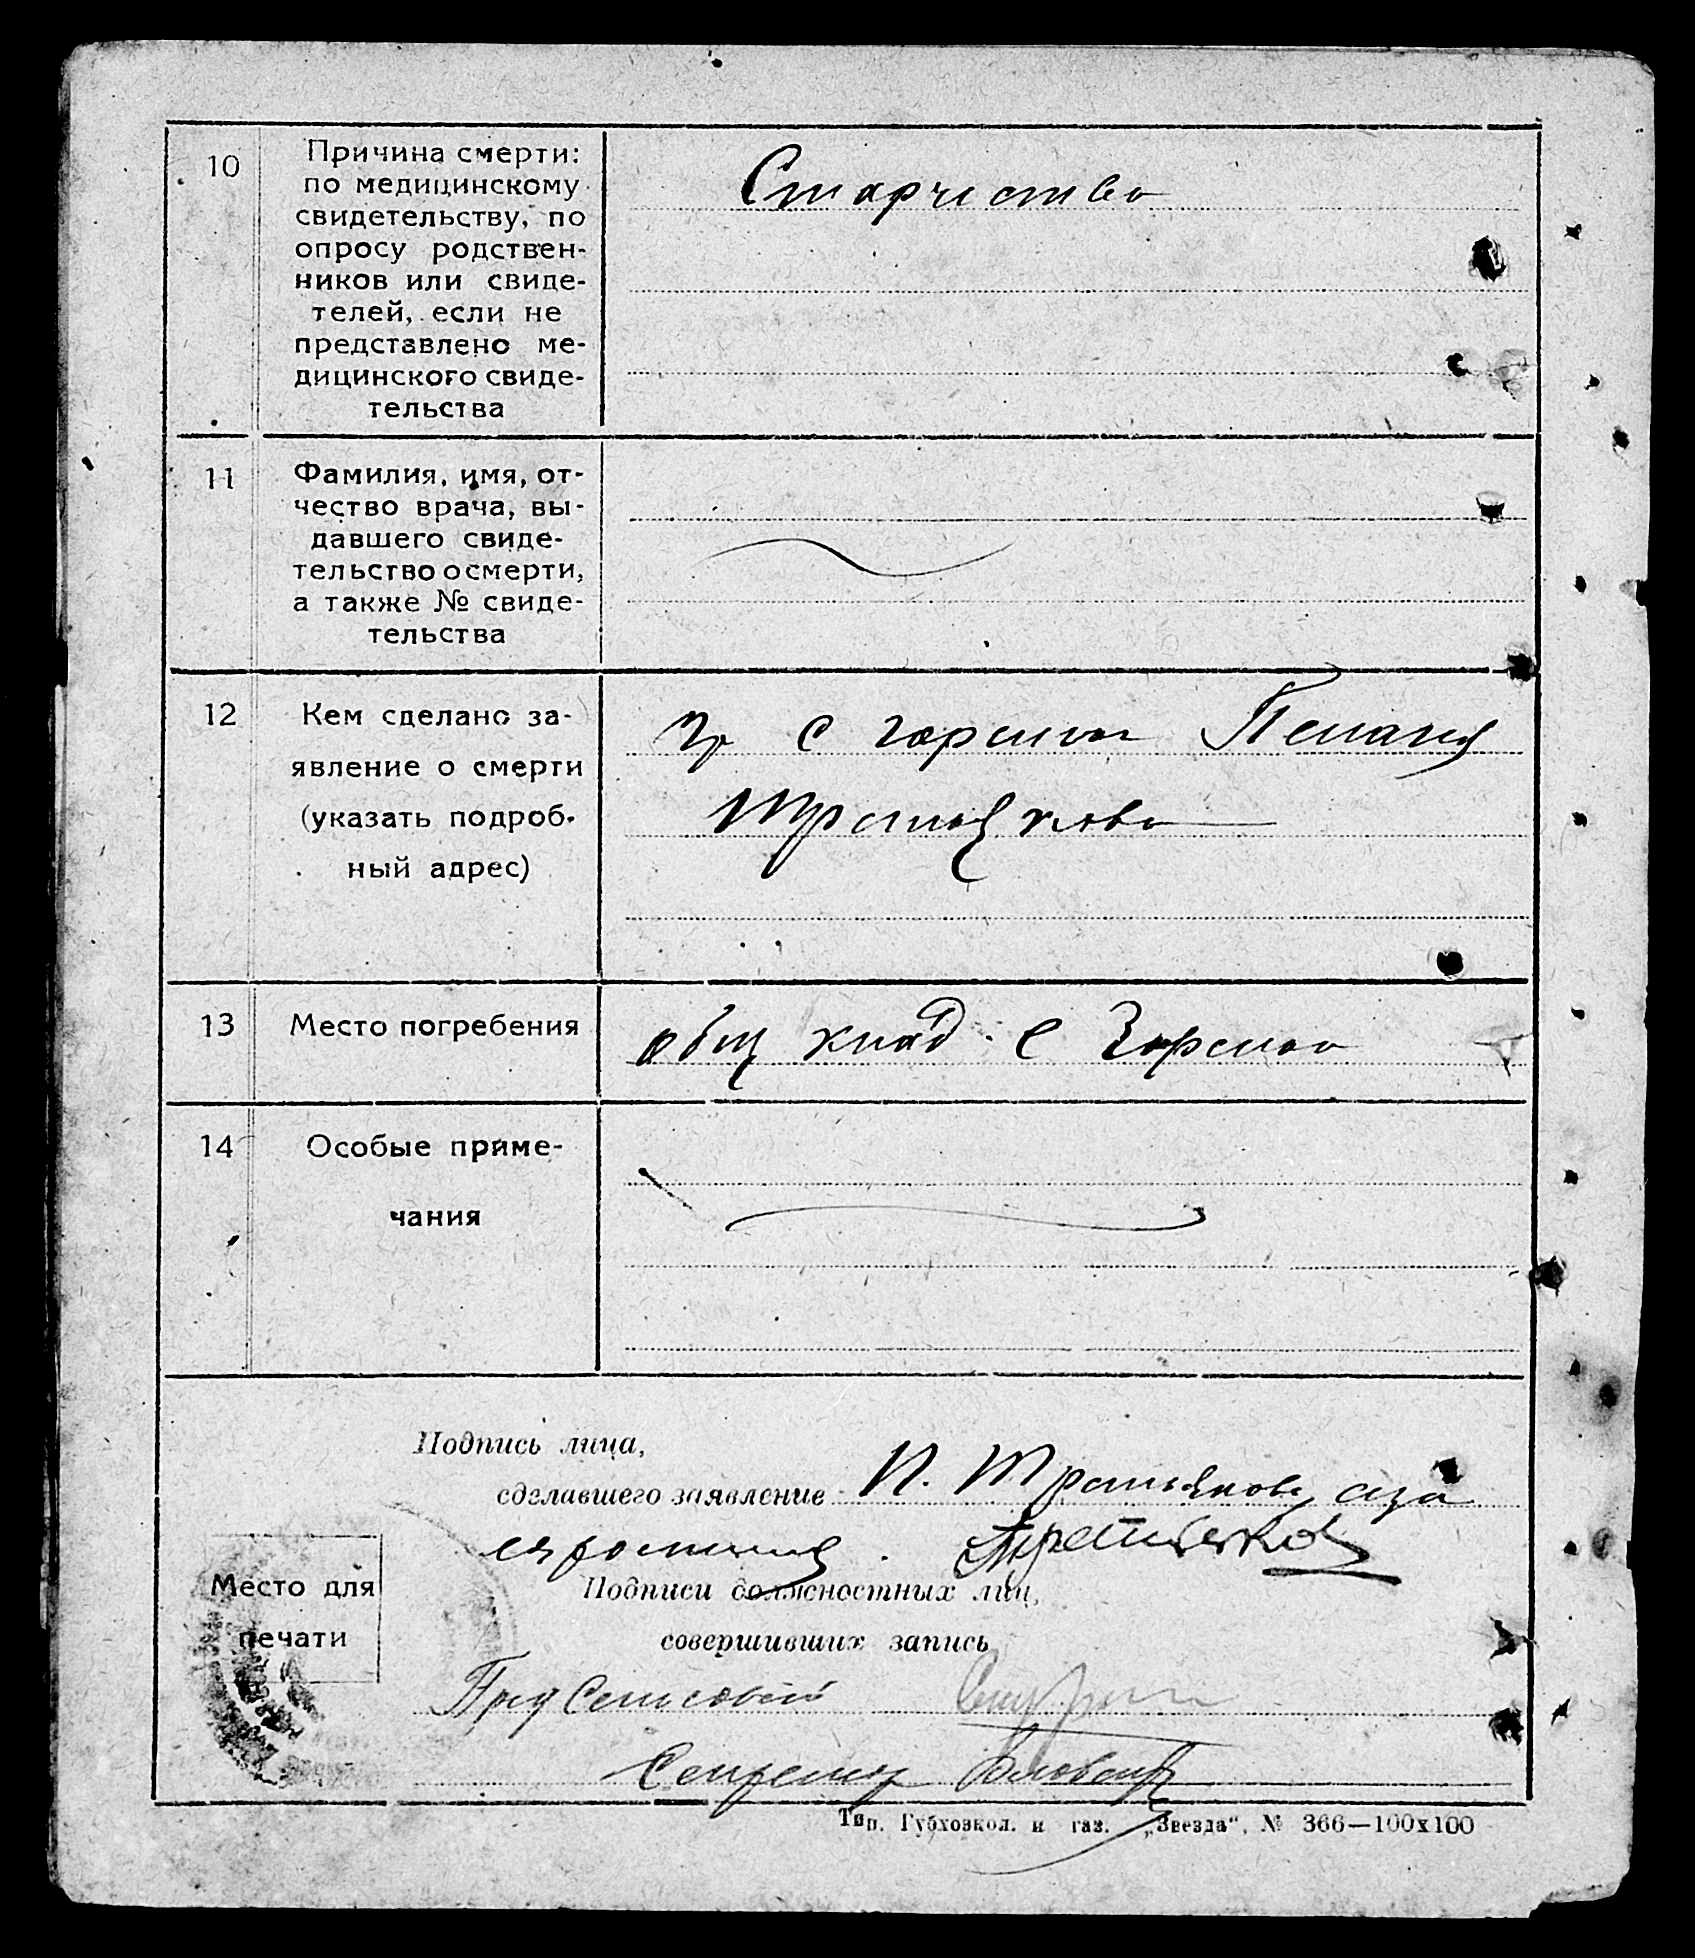 10
Причина смерти:
по медицинскому
свидетельству, по
опросу родствен-
ников или свиде-
телей, если не
представлено ме-
дицинского свиде-
тельства
Старчества
11
Фамилия, имя, от-
чество врача, вы-
давшего свиде-
тельство о смерти,
а также № свиде-
тельства
12
Кем сделано за-
явление о смерти
(указать подроб-
ный адрес)
гр с
13
Место погребения
общ клад. с
14
Особые приме-
чания
Подпись лица,
сделавшего заявление П. за
Место для
печати
Подписи должностных лиц,
совершивших запись
Пред
Секретар
Тип. Губхозкол. и газ. „Звезда“, № 366—100х100